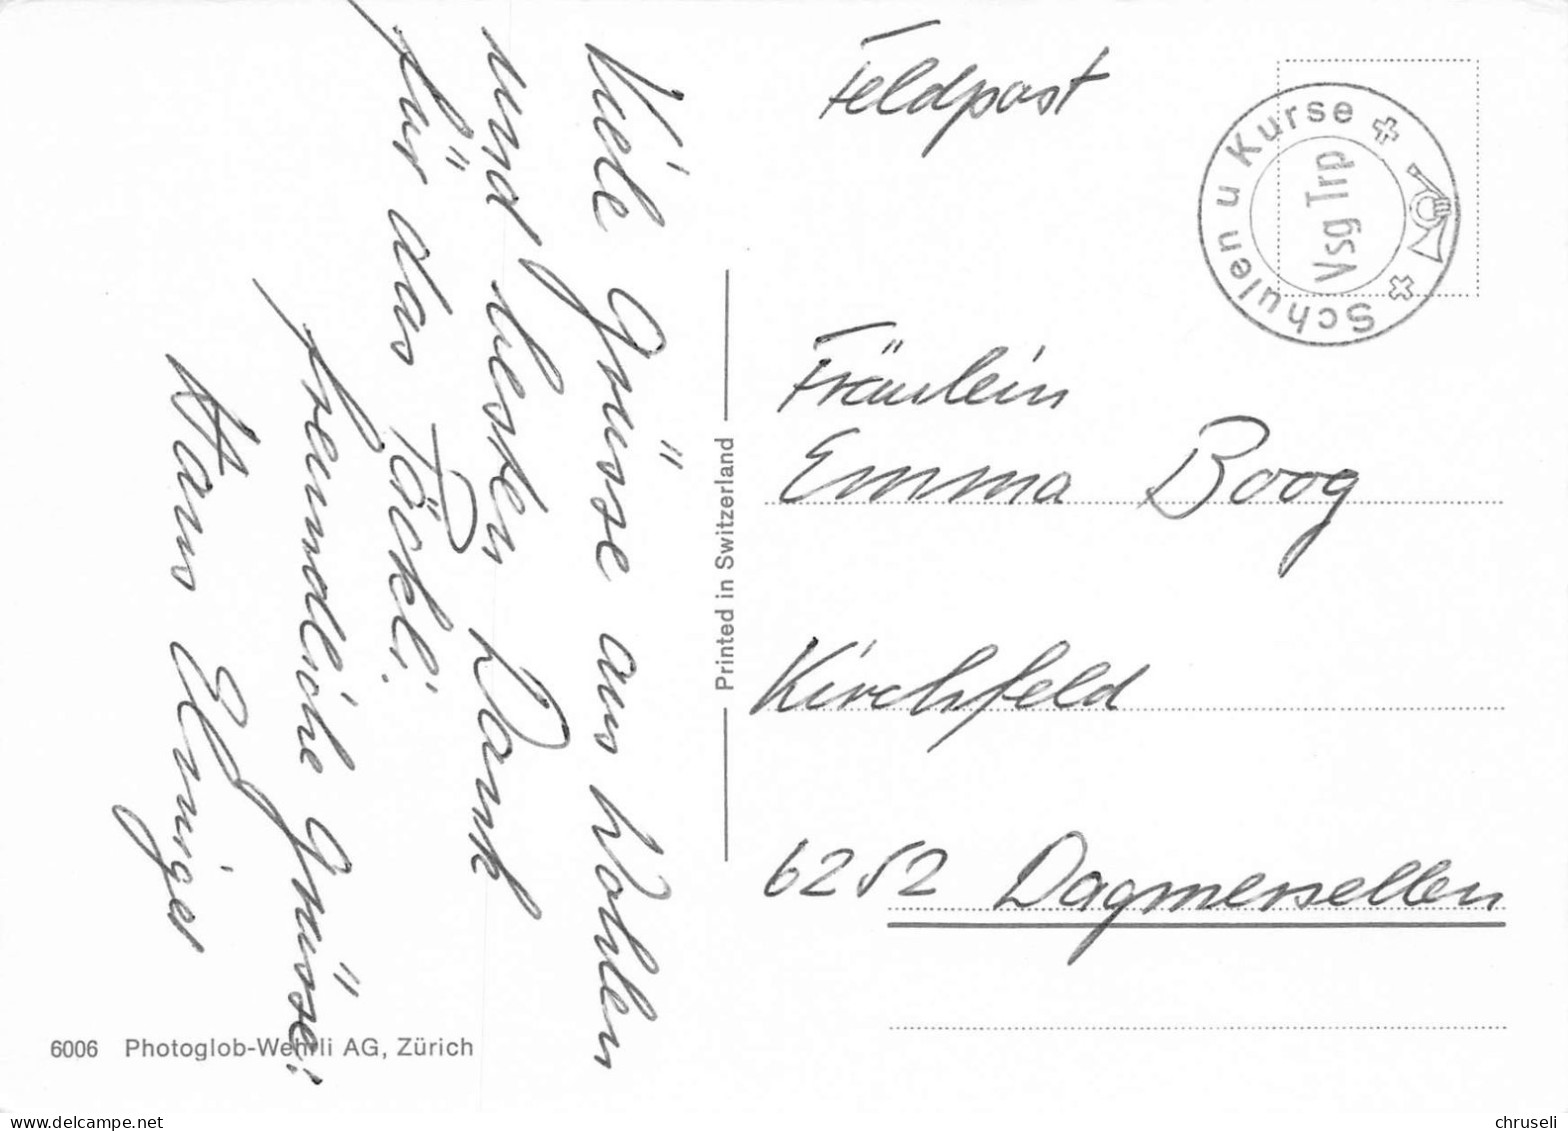 Viele Grüsse aus Wohlen
und besten Dank
für das Päckli.
freundliche Grüsse!
Hans
Feldpost
Schulen u Kurse
Vsg Trp
Fräulein
Emma Boog
Kirchfeld
6252 Dagmersellen
Printed in Switzerland
6006 Photoglob-Wehrli AG, Zürich
chruseli